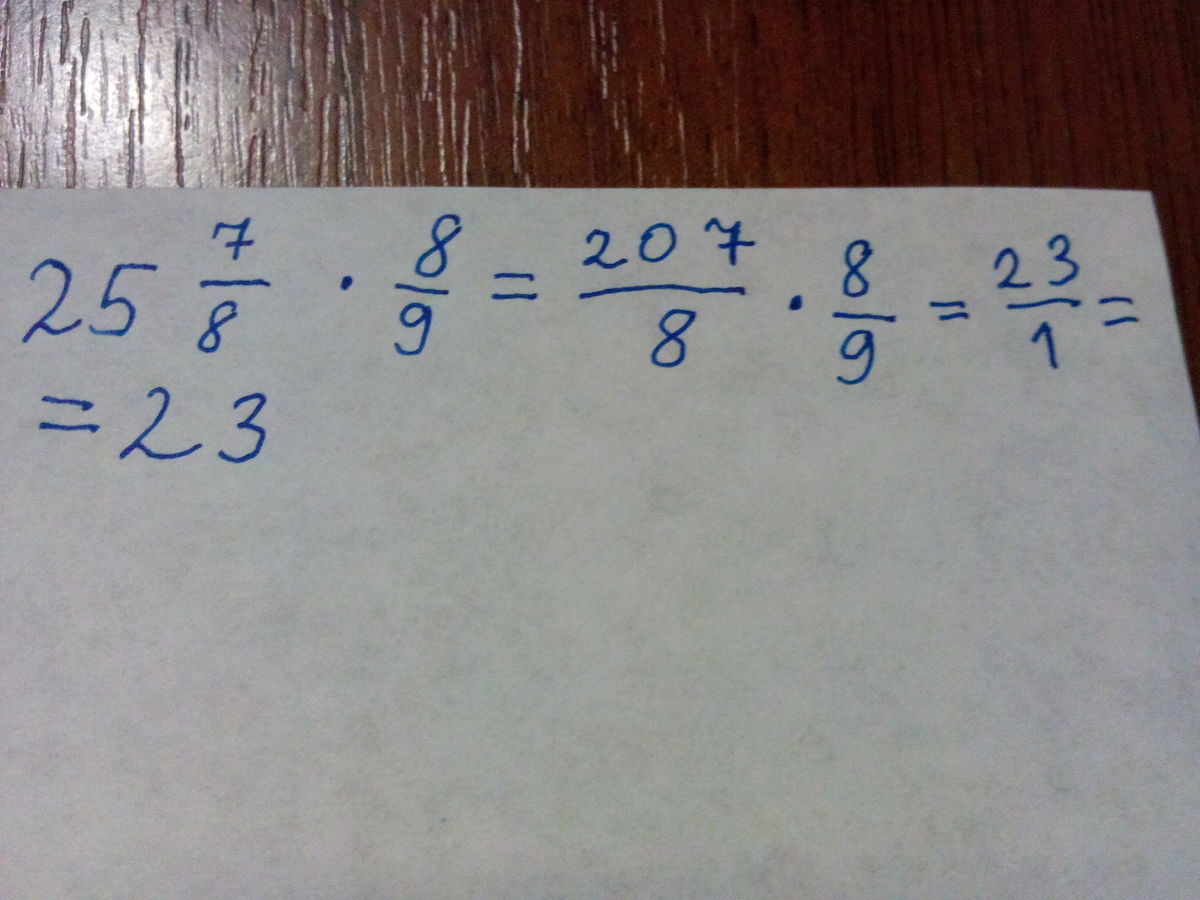 25 7/8 · 8/9 = 207/8 · 8/9 = 23/1 =
= 23